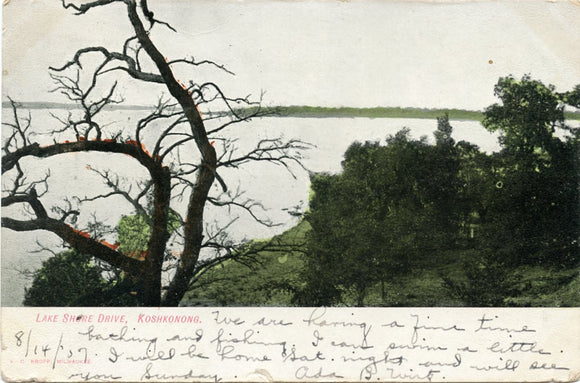 LAKE SHORE DRIVE, KOSHKONONG. We are having a fine time
8/14/07. bathing and fishing. I can swim a little.
I will be home Sat. night and will see
you Sunday. Ada B.
E. C. KROPP, MILWAUKEE